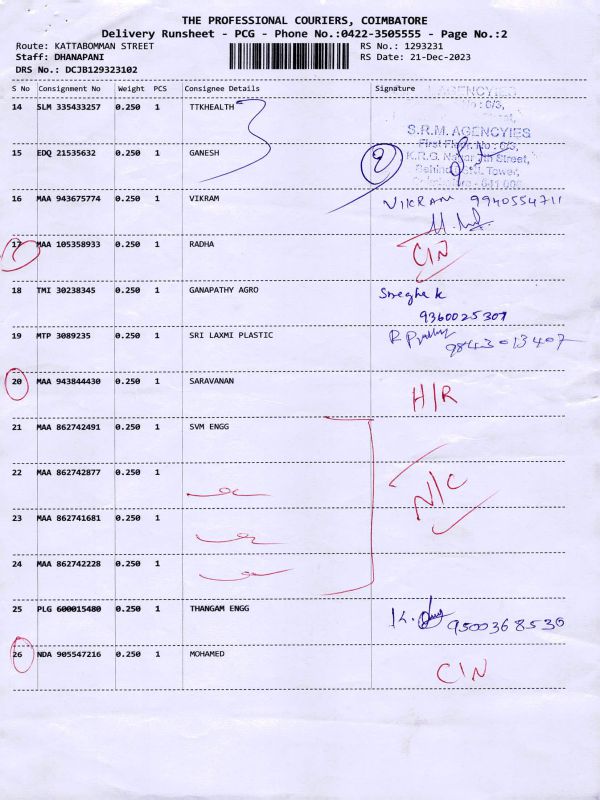 THE PROFESSIONAL COURIERS, COIMBATORE
Delivery Runsheet - PCG - Phone No.:0422-3505555 - Page No.:2
Route: KATTABOMMAN STREET RS No.: 1293231
Staff: DHANAPANI RS Date: 21-Dec-2023
DRS No.: DCJB129323102
S No Consignment No Weight PCS Consignee Details Signature
14 SLM 335433257 0.250 1 TTKHEALTH
S.R.M. AGENCYIES
15 EDQ 21535632 0.250 1 GANESH 2
16 MAA 943675774 0.250 1 VIKRAM VIKRAM 9940554711
17 MAA 105358933 0.250 1 RADHA C/N
18 TMI 30238345 0.250 1 GANAPATHY AGRO
9360025307
19 MTP 3089235 0.250 1 SRI LAXMI PLASTIC 9843013407
20 MAA 943844430 0.250 1 SARAVANAN H/R
21 MAA 862742491 0.250 1 SVM ENGG
22 MAA 862742877 0.250 1 N/C
23 MAA 862741681 0.250 1
24 MAA 862742228 0.250 1
25 PLG 600015480 0.250 1 THANGAM ENGG 9500368530
26 NDA 905547216 0.250 1 MOHAMED C/N